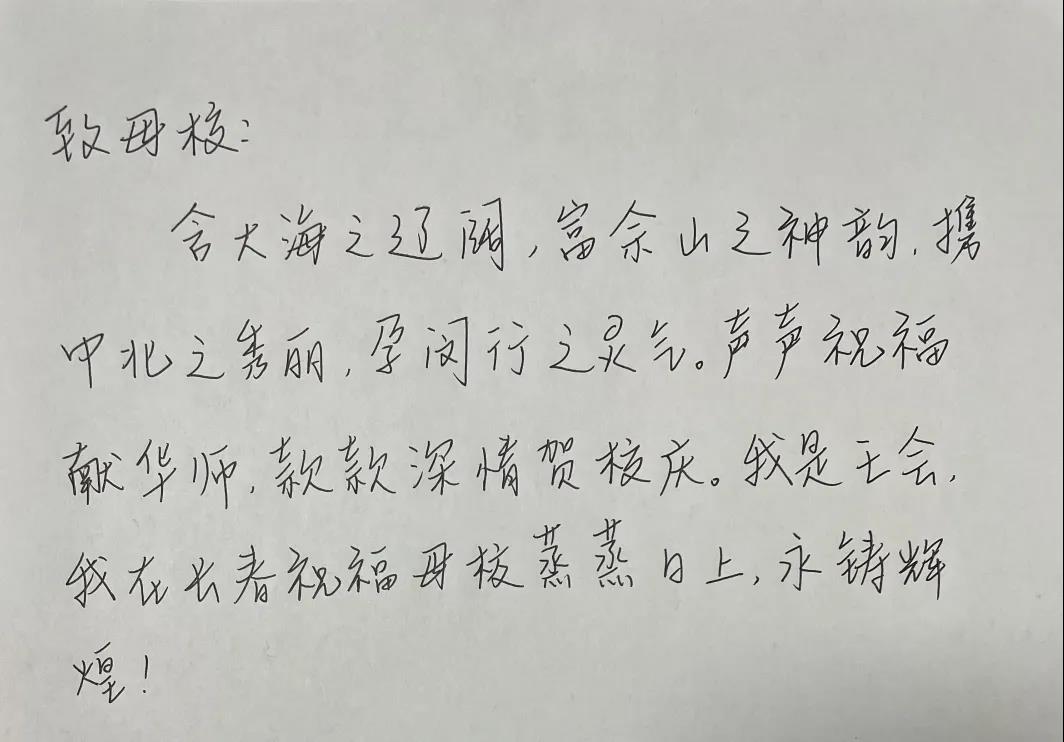 致母校：
含大海之辽阔，富佘山之神韵，携
中北之秀丽，孕闵行之灵气。声声祝福
献华师，款款深情贺校庆。我是王会，
我在长春祝福母校蒸蒸日上，永铸辉
煌！